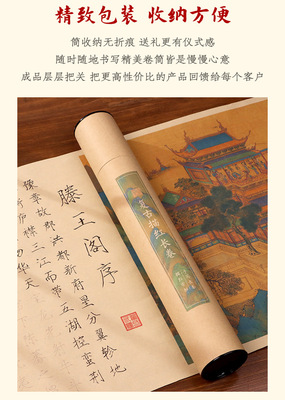 精致包装 收纳方便
筒收纳无折痕 送礼更有仪式感
随时随地书写精美卷筒皆是慢慢心意
成品层层把关 把更高性价比的产品回馈给每个客户
滕王阁序
豫章故郡洪都新府星分翼轸地
三江而带五湖控蛮荆
复古描红长卷